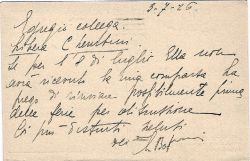 3-7-26
Egregio collega.
Lidera Cherubini
se per l'8 di luglio Ella non
avrà ricevuto la mia comparsa La
prego di rinviare possibilmente prima
delle ferie per costituzione
Coi più distinti saluti